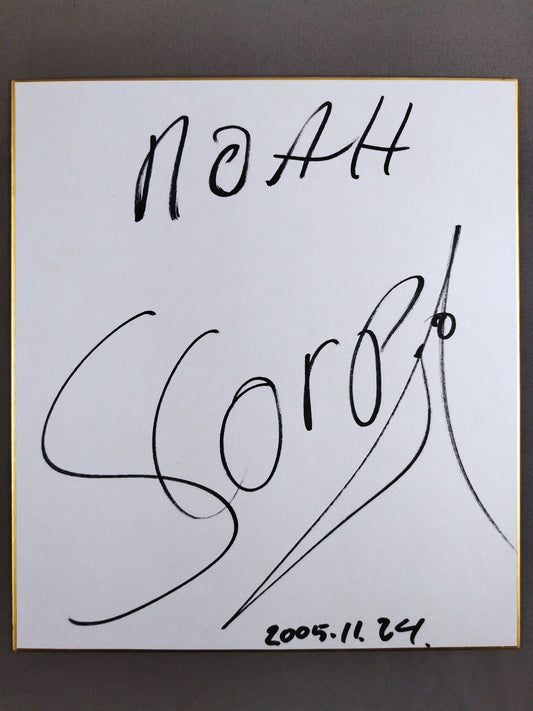 NOAH
Scorpio
2005.11.24.